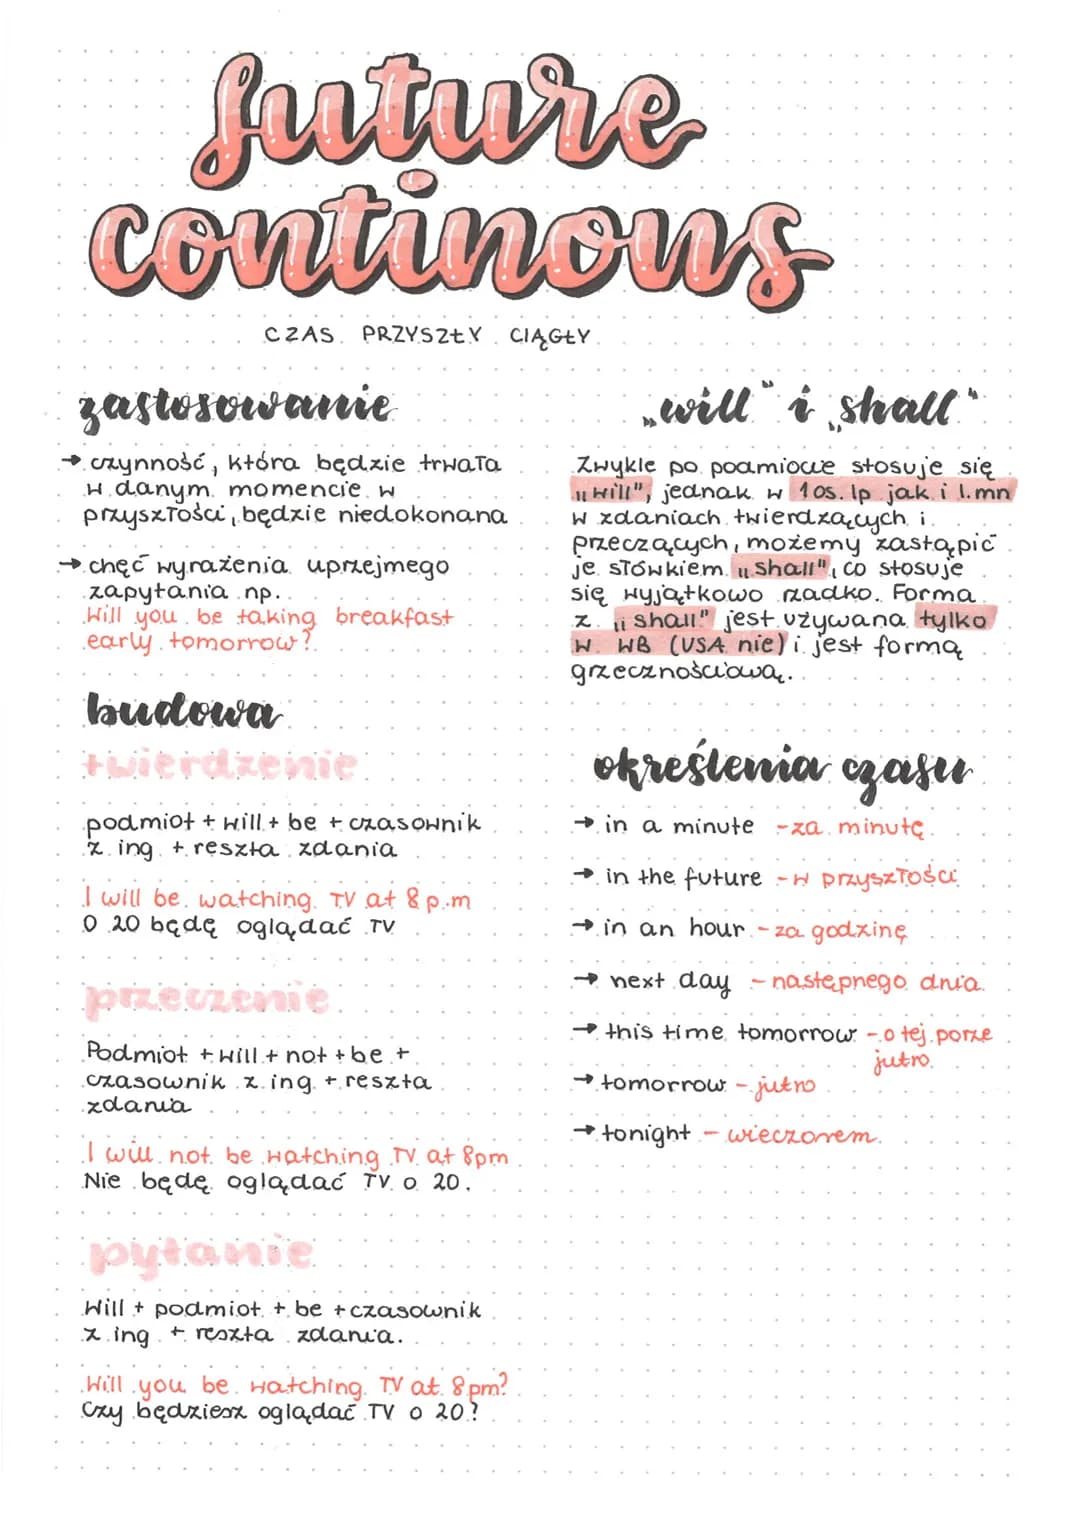 future
continous
CZAS PRZYSZŁY CIĄGŁY
zastosowanie
→ czynność, która będzie trwała
w danym momencie w
przyszłości, będzie niedokonana
→ chęć wyrażenia uprzejmego
zapytania np.
Will you be taking breakfast
early tomorrow?
budowa
twierdzenie
podmiot + will + be + czasownik
z ing + reszta zdania
I will be watching TV at 8 p.m
O 20 będę oglądać TV
przeczenie
Podmiot + will + not + be +
czasownik z ing + reszta
zdania
I will not be watching TV at 8pm
Nie będę oglądać TV o 20.
pytanie
Will + podmiot + be + czasownik
z ing + reszta zdania.
Will you be watching TV at 8pm?
Czy będziesz oglądać TV o 20?
„will" i „shall"
Zwykle po podmiocie stosuje się
„will", jednak w 1 os. lp jak i l.mn
w zdaniach twierdzących i
przeczących, możemy zastąpić
je słówkiem „shall", co stosuje
się wyjątkowo rzadko. Forma
z „shall" jest używana tylko
w WB (USA nie) i jest formą
grzecznościową.
określenia czasu
→ in a minute - za minutę
→ in the future - w przyszłości
→ in an hour - za godzinę
→ next day - następnego dnia
→ this time tomorrow - o tej porze
jutro
→ tomorrow - jutro
→ tonight - wieczorem